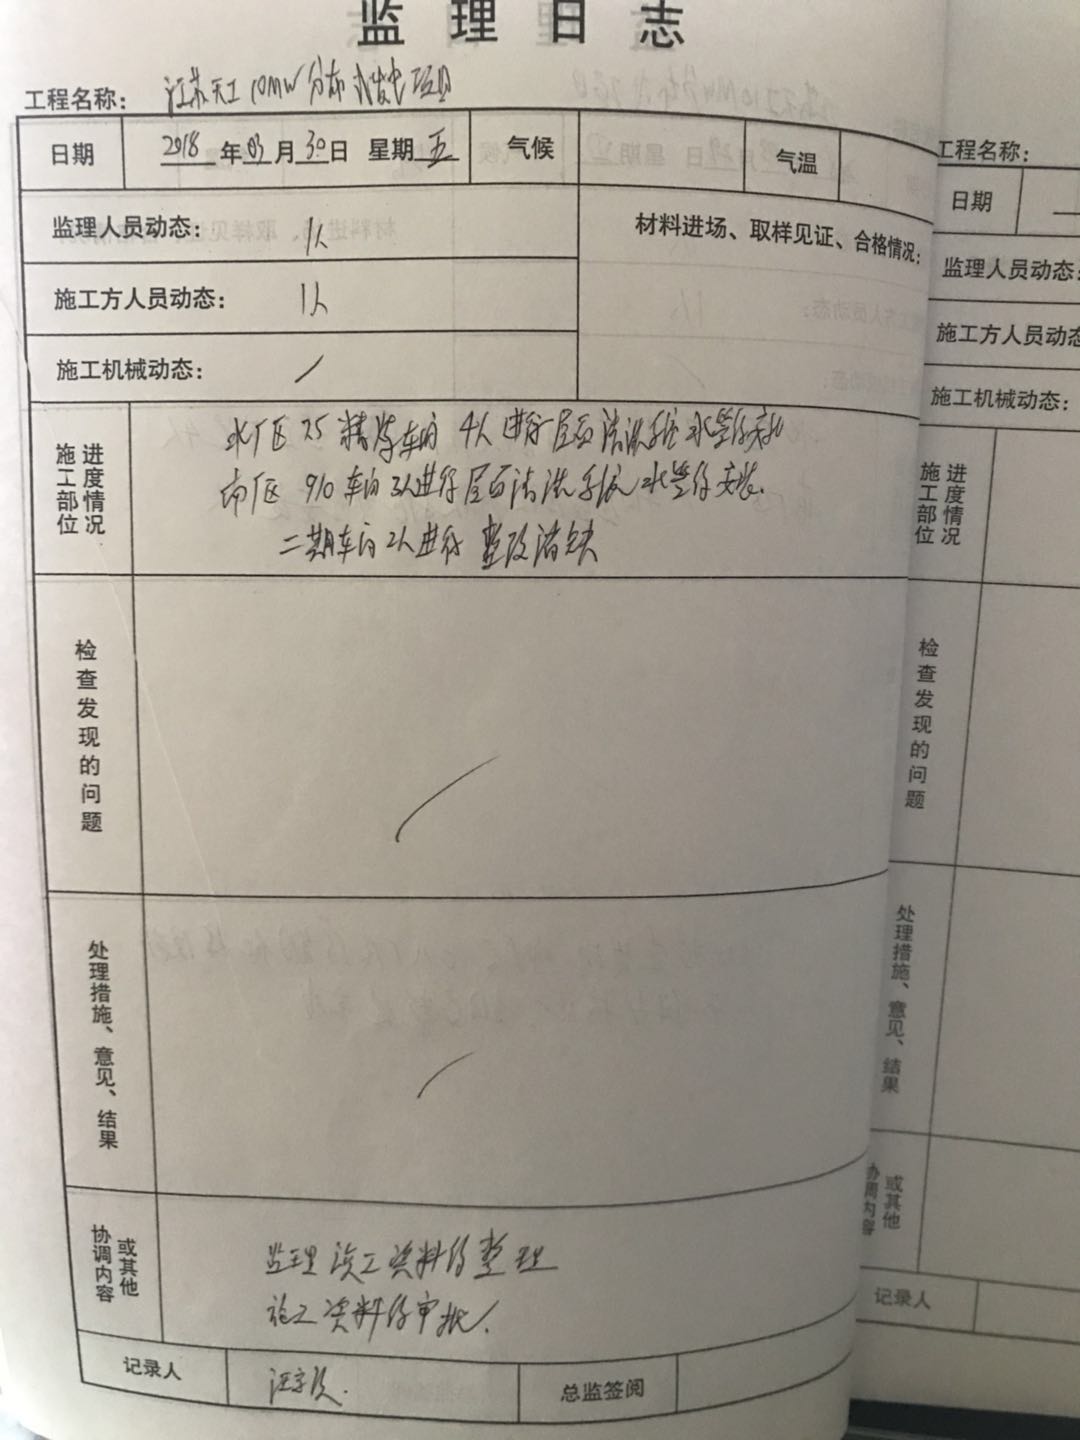 监理日志
工程名称： 江苏天工10MW分布式发电项目
日期 2018年03月30日 星期五 气候 气温
监理人员动态： 1人 材料进场、取样见证、合格情况：
施工方人员动态： 1人
施工机械动态： /
施工部位 进度情况
厂区 75 精炼车间 4人进行屋面清洗系统水管的安装
南厂区 910车间3人进行屋面清洗系统水管的安装.
二期车间2人进行整改消缺
检查发现的问题
/
处理措施、意见、结果
/
协调内容 或其他
监理竣工资料的整理
施工资料的审批.
记录人 总监签阅
工程名称：
日期
监理人员动态：
施工方人员动态
施工机械动态：
施工部位 进度情况
检查发现的问题
处理措施、意见、结果
协调内容 或其他
记录人